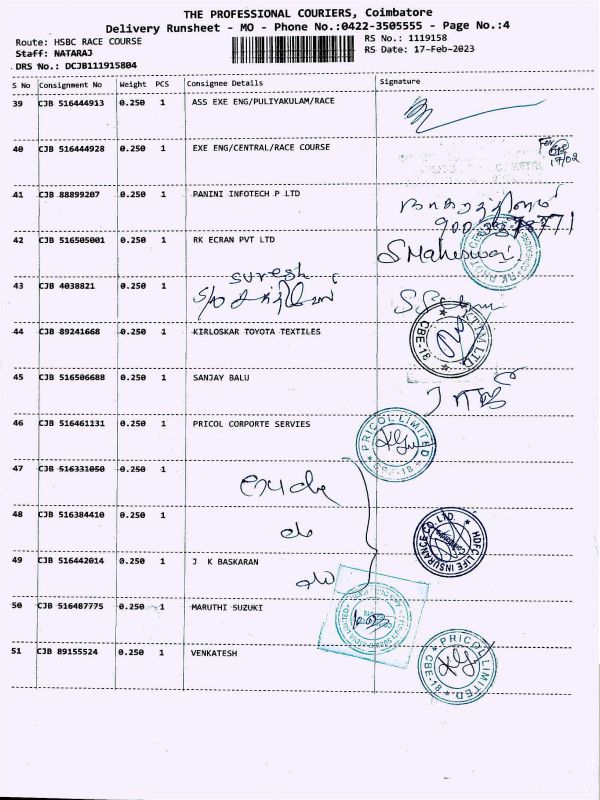 THE PROFESSIONAL COURIERS, Coimbatore
Delivery Runsheet - MO - Phone No.:0422-3505555 - Page No.:4
Route: HSBC RACE COURSE
RS No.: 1119158
Staff: NATARAJ
RS Date: 17-Feb-2023
DRS No.: DCJB111915804
S No Consignment No Weight PCS Consignee Details Signature
39 CJB 516444913 0.250 1 ASS EXE ENG/PULIYAKULAM/RACE
40 CJB 516444928 0.250 1 EXE ENG/CENTRAL/RACE COURSE
17/02
41 CJB 88899207 0.250 1 PANINI INFOTECH P LTD
42 CJB 516505001 0.250 1 RK ECRAN PVT LTD
S Maheswari
suresh
43 CJB 4038821 0.250 1
44 CJB 89241668 0.250 1 KIRLOSKAR TOYOTA TEXTILES
CBE-18
45 CJB 516506688 0.250 1 SANJAY BALU
46 CJB 516461131 0.250 1 PRICOL CORPORTE SERVIES
PRICOL LIMITED
CBE-18
47 CJB 516331050 0.250 1
48 CJB 516384410 0.250 1
HDFC LIFE INSURANCE CO LTD.
49 CJB 516442014 0.250 1 J K BASKARAN
50 CJB 516487775 0.250 1 MARUTHI SUZUKI
51 CJB 89155524 0.250 1 VENKATESH
PRICOL LIMITED
CBE-18